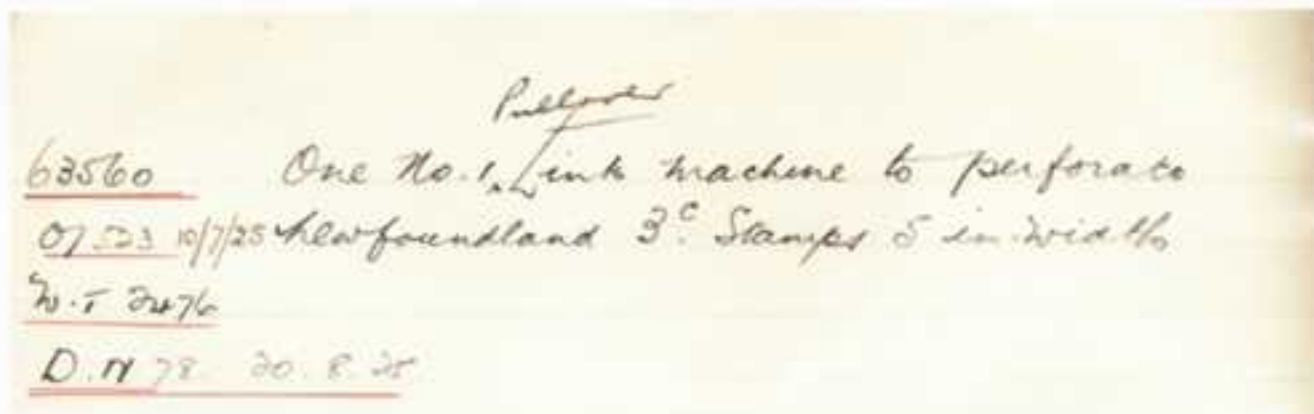 Pullover
63560 One No. 1 Link machine to perforate
O/ 523 10/7/25 Newfoundland 3c. Stamps 5 in width
W.T 2476
D.N 78 20.8.25